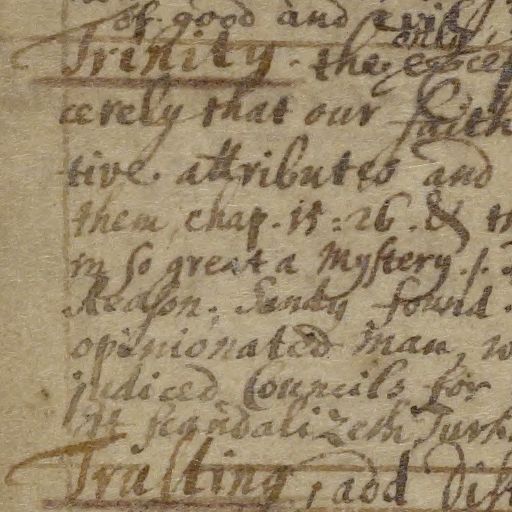 of good and evil,
Trinity. the only excep
cerely that our faith
tive attributes and
them, chap. 15. 26. & th
in so great a Mystery. s.
Reason. Sandy found
opinionated man, w
judiced Councils for
It scandalizeth Turk
Trusting, add Dist